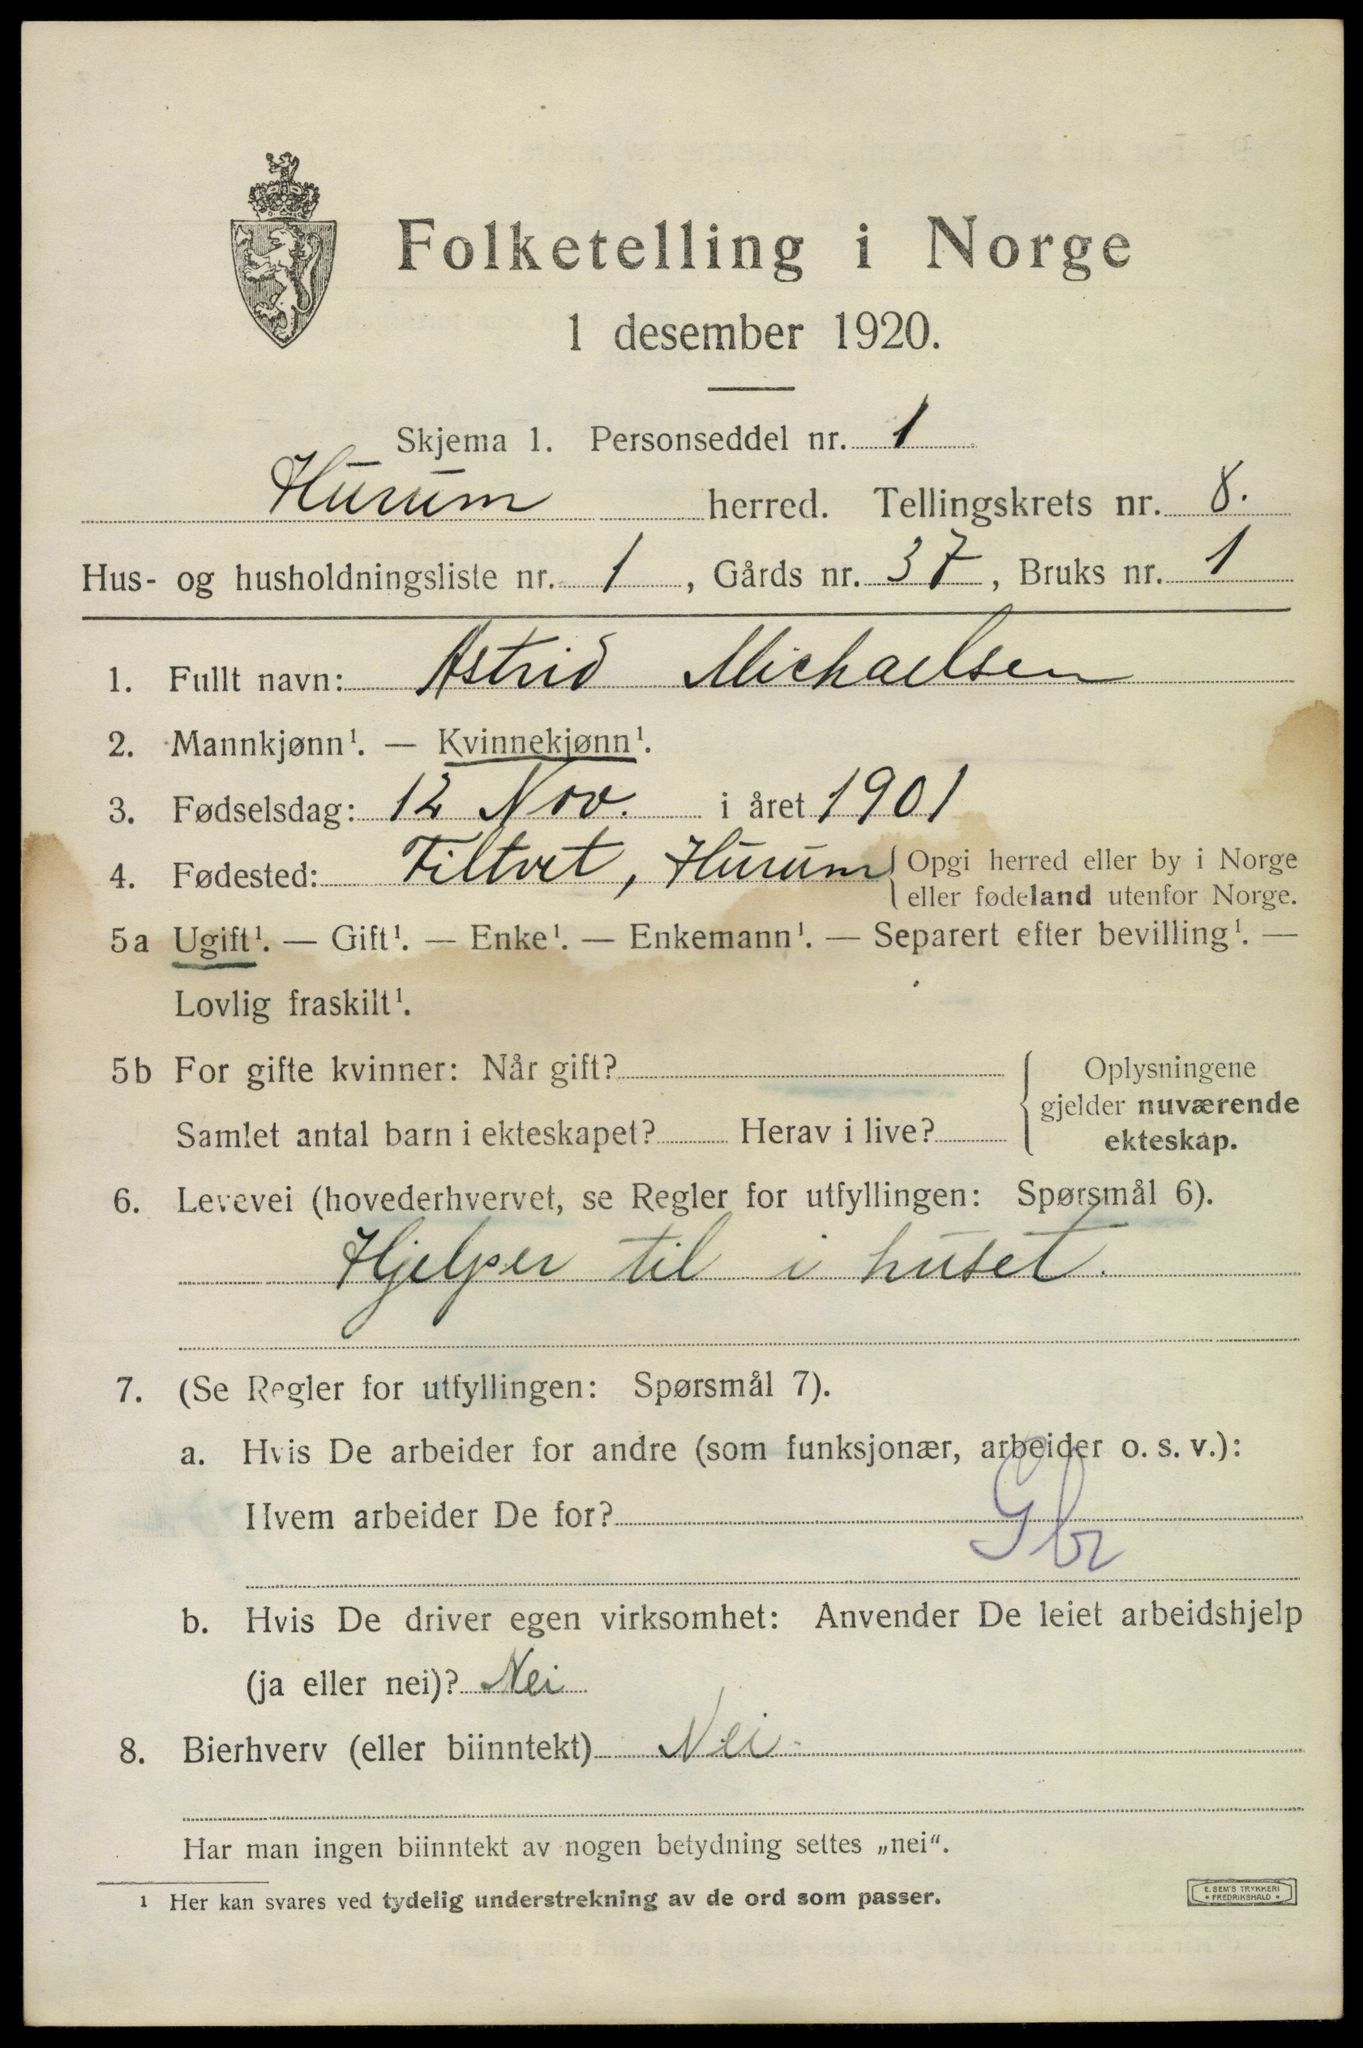 Folketelling i Norge
1 desember 1920.
Skjema 1. Personseddel nr. 1
Hurum herred. Tellingskrets nr. 8.
Hus- og husholdningsliste nr. 1, Gårds nr. 37, Bruks nr. 1
1. Fullt navn: Astrid Michaelsen
2. Mannkjønn¹. — Kvinnekjønn¹.
3. Fødselsdag: 12 Nov. i året 1901
4. Fødested: Filtvet, Hurum { Opgi herred eller by i Norge
eller fødeland utenfor Norge.
5a Ugift¹. — Gift¹. — Enke¹. — Enkemann¹. — Separert efter bevilling¹. —
Lovlig fraskilt¹.
5b For gifte kvinner: Når gift?
Samlet antal barn i ekteskapet? Herav i live?
{ Oplysningene
gjelder nuværende
ekteskap.
6. Levevei (hovederhvervet, se Regler for utfyllingen: Spørsmål 6).
Hjelper til i huset.
7. (Se Regler for utfyllingen: Spørsmål 7).
a. Hvis De arbeider for andre (som funksjonær, arbeider o. s. v.):
Hvem arbeider De for?
Gbr
b. Hvis De driver egen virksomhet: Anvender De leiet arbeidshjelp
(ja eller nei)? Nei
8. Bierhverv (eller biinntekt) Nei
Har man ingen biinntekt av nogen betydning settes „nei“.
¹ Her kan svares ved tydelig understrekning av de ord som passer.
E. SEM'S TRYKKERI
• FREDRIKSHALD •